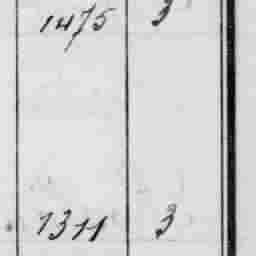 1475 3
1311 3